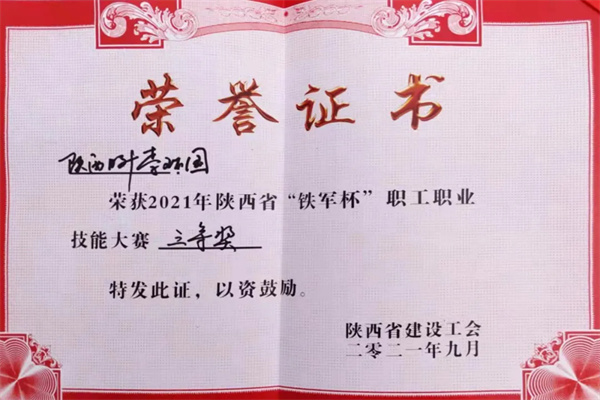 荣誉证书
陕西
荣获2021年陕西省“铁军杯”职工职业
技能大赛 三等奖
特发此证，以资鼓励。
陕西省建设工会
二零二一年九月